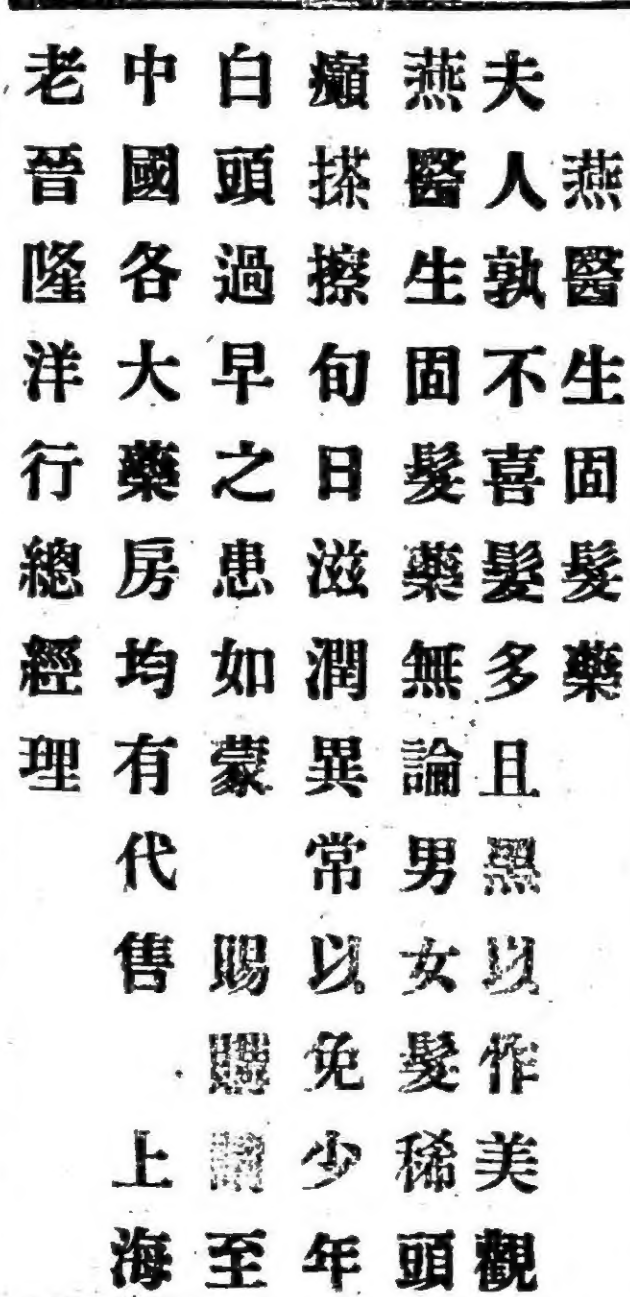 燕醫生固髮藥
夫人孰不喜髮多且黑以作美觀
燕醫生固髮藥無論男女髮稀頭
癩搽擦旬日滋潤異常以免少年
白頭過早之患如蒙　賜購請至
中國各大藥房均有代售　上海
老晉隆洋行總經理